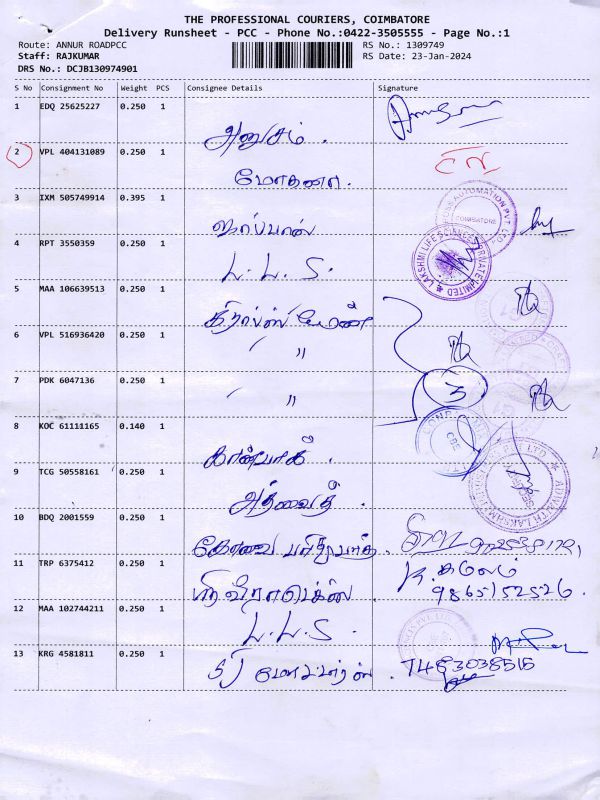 THE PROFESSIONAL COURIERS, COIMBATORE
Delivery Runsheet - PCC - Phone No.:0422-3505555 - Page No.:1
Route: ANNUR ROADPCC
RS No.: 1309749
Staff: RAJKUMAR
RS Date: 23-Jan-2024
DRS No.: DCJB130974901
S No Consignment No Weight PCS Consignee Details Signature
1 EDQ 25625227 0.250 1
அனுசம்.
2 VPL 404131089 0.250 1
மோகனா.
3 IXM 505749914 0.395 1
COIMBATORE
4 RPT 3550359 0.250 1
L. L. S.
LAKSHMI LIFE SCIENCE PRIVATE LIMITED
5 MAA 106639513 0.250 1
6 VPL 516936420 0.250 1
" "
7 PDK 6047136 0.250 1
" "
3
8 KOC 61111165 0.140 1
CBE
9 TCG 50558161 0.250 1
அத்வைத்
10 BDQ 2001559 0.250 1
கோவை
11 TRP 6375412 0.250 1
K. கமலம்
9865152526
12 MAA 102744211 0.250 1
L. L. S.
13 KRG 4581811 0.250 1
7483038515